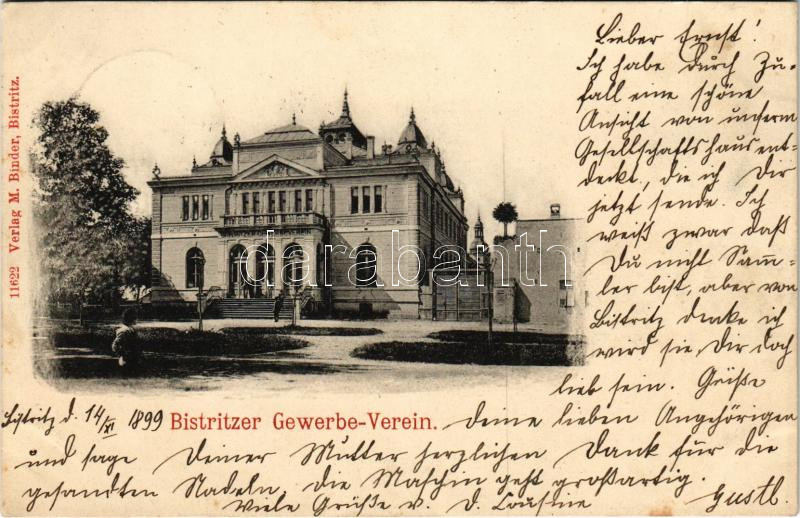 Lieber Ernst!
Ich habe durch Zu-
fall eine schöne
Ansicht von unserm
Gesellschaftshaus ent-
deckt, die ich Dir
jetzt sende. Ich
weiß zwar daß
Du nicht Samm-
ler bist, aber von
Bistritz denke ich
wird sie Dir doch
lieb sein. Grüße
Deine lieben Angehörigen
und sage Deiner Mutter herzlichen Dank für die
gesandten Nadeln, die Maschin geht großartig.
Viele Grüße v. d. Cousine Gustl.
Bistritz d. 14/XI 1899
Bistritzer Gewerbe-Verein.
11622 Verlag M. Binder, Bistritz.
darabanth